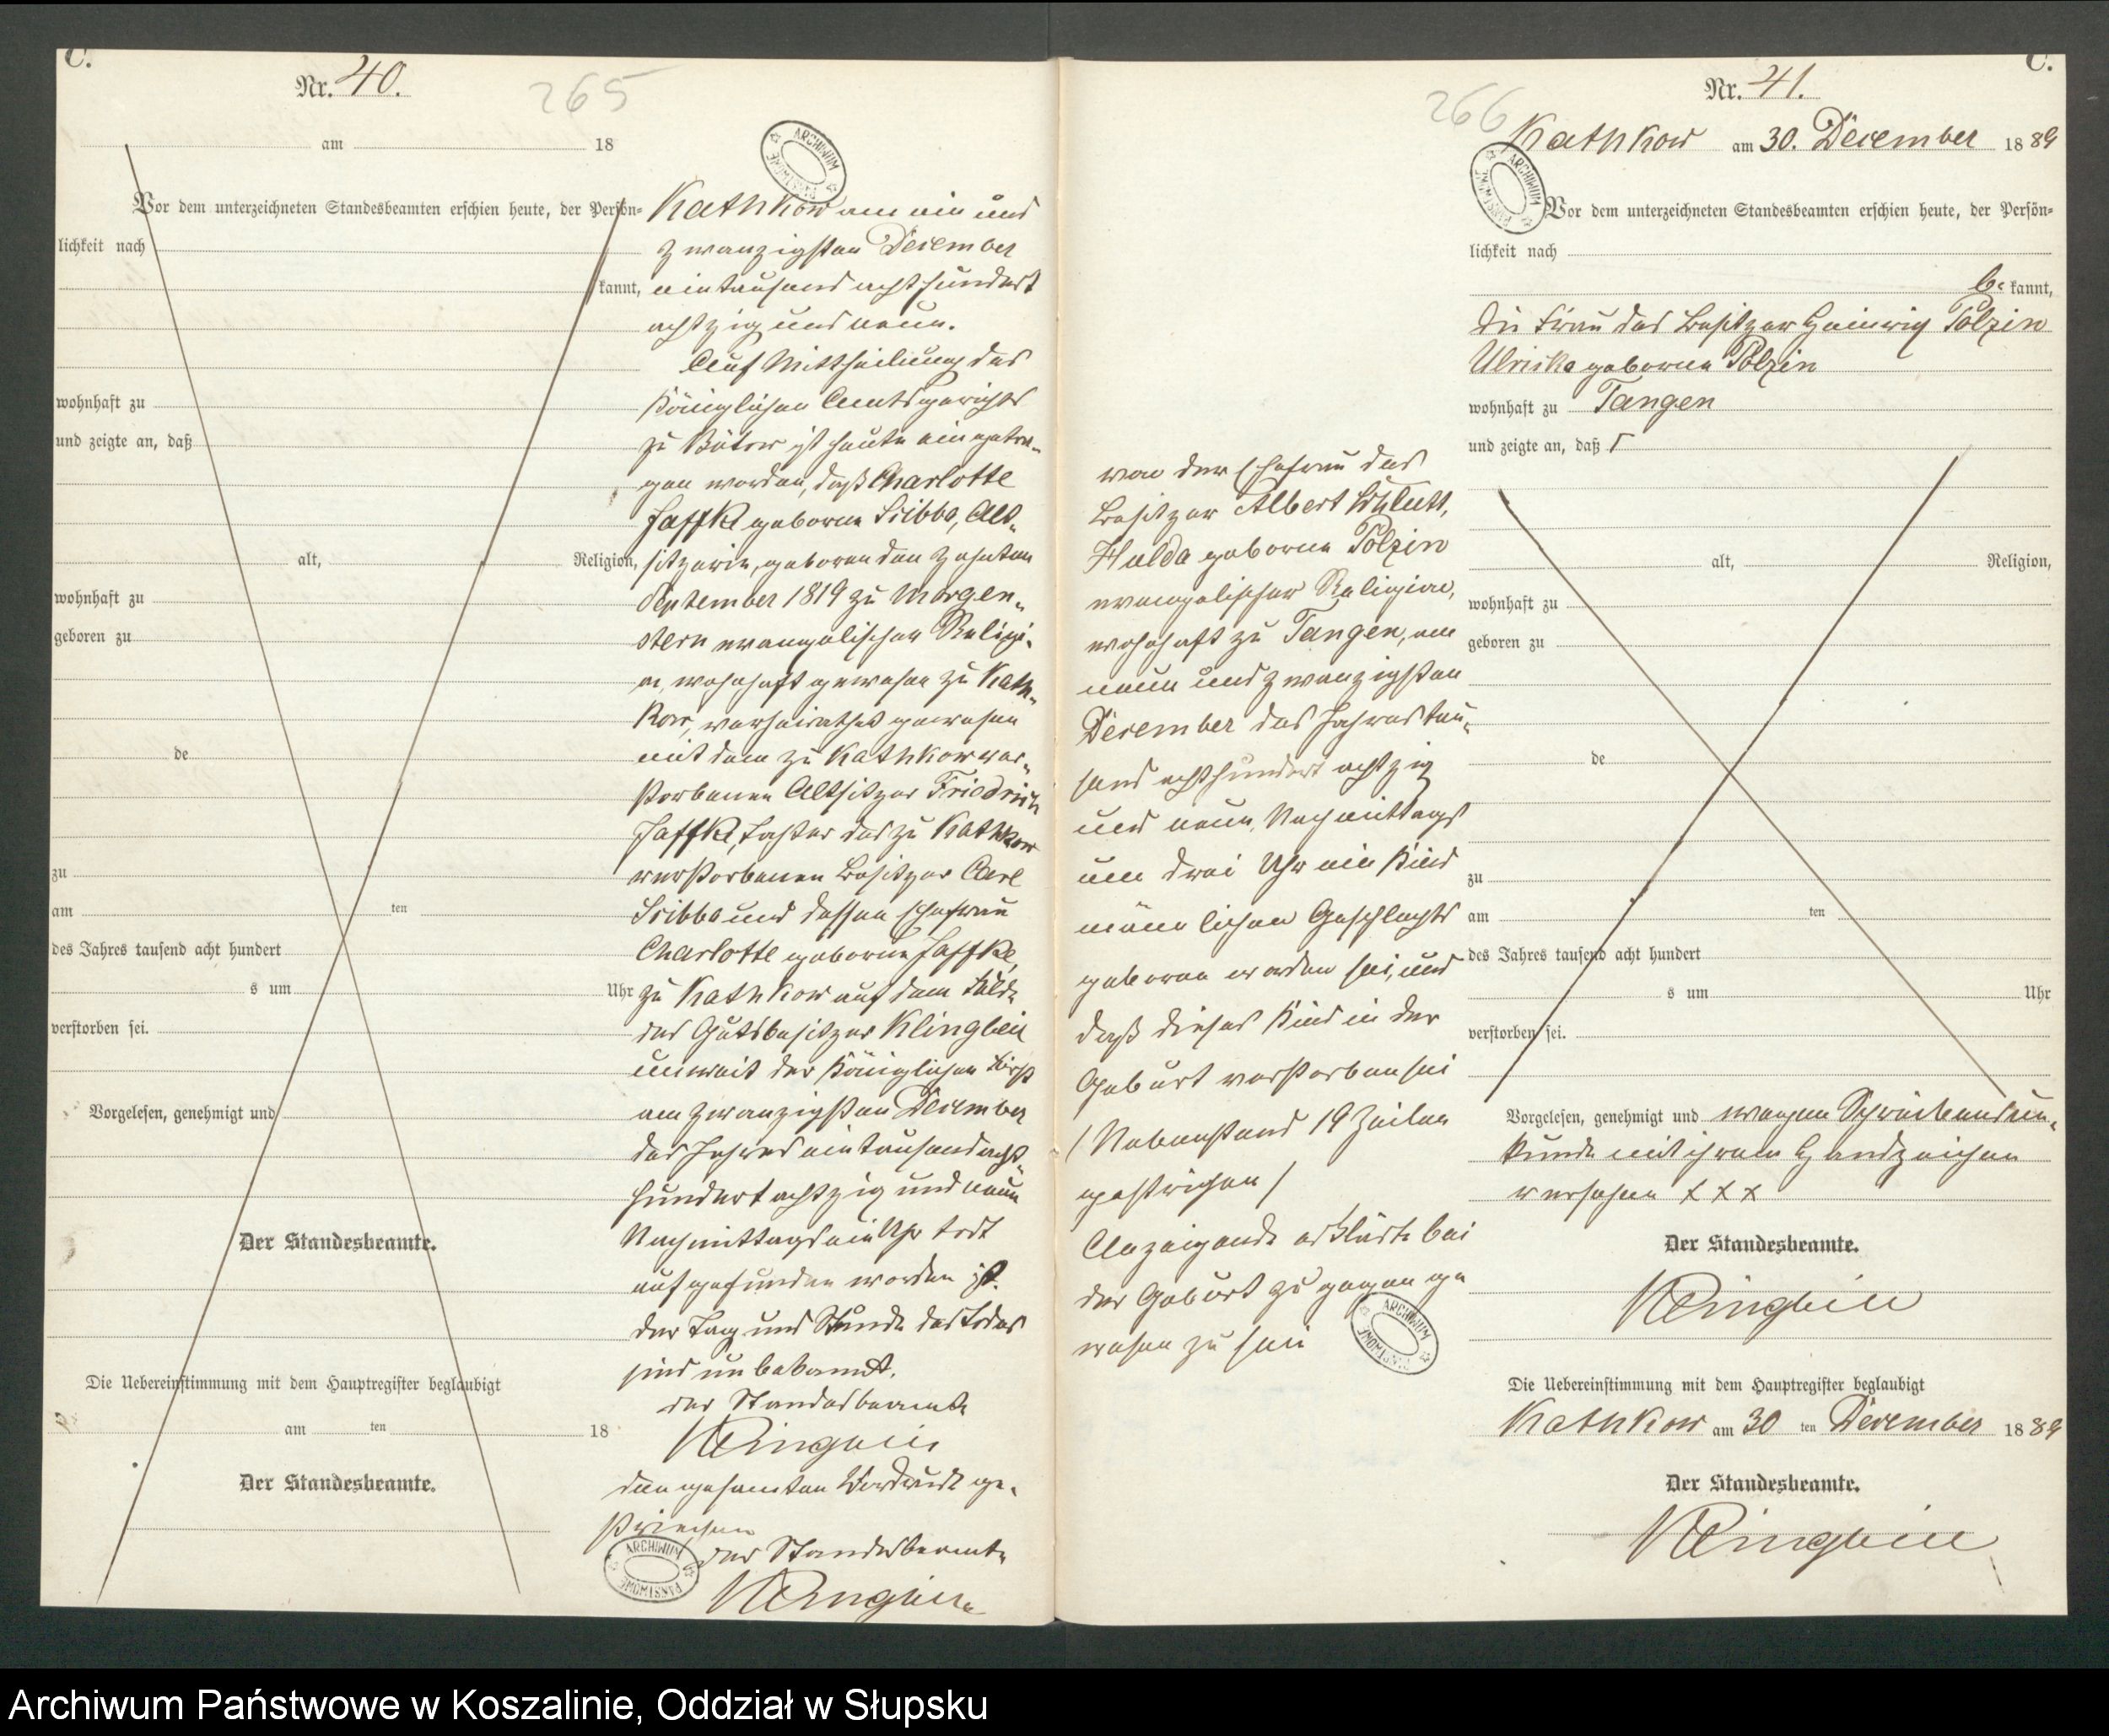 C.
Nr. 40.
265
am 18
Vor dem unterzeichneten Standesbeamten erschien heute, der Persön=
lichkeit nach
kannt,
wohnhaft zu
und zeigte an, daß
alt, Religion,
wohnhaft zu
geboren zu
de
zu
am ten
des Jahres tausend acht hundert
s um Uhr
verstorben sei.
Vorgelesen, genehmigt und
Der Standesbeamte.
Die Uebereinstimmung mit dem Hauptregister beglaubigt
am ten 18
Der Standesbeamte.
Kathkow am ein und
zwanzigsten December
eintausend achthundert
achtzig und neun.
Auf Mittheilung des
Königlichen Amtsgerichts
zu Bütow ist heute eingetra-
gen worden, daß Charlotte
Jaffke geborene Scibbe, Alt-
sitzerin, geboren den zehnten
September 1819 zu Morgen-
stern evangelischer Religi-
on, wohnhaft gewesen zu Kath-
kow, verheirathet gewesen
mit dem zu Kathkow ver-
storbenen Altsitzer Friedrich
Jaffke, Tochter des zu Kathkow
verstorbenen Besitzer Carl
Scibbe und dessen Ehefrau
Charlotte geborene Jaffke,
zu Kathkow auf dem Felde
des Gutsbesitzer Klingbeil
unweit der Königlichen Forst
am zwanzigsten December
des Jahres eintausend acht-
hundert achtzig und neun
Nachmittags ein Uhr todt
aufgefunden worden ist.
Der Tag und Stunde des Todes
sind unbekannt.
Der Standesbeamte
Klingbeil
den gesamten Vordruck ge-
strichen
Der Standesbeamte
Klingbeil
ARCHIWUM PAŃSTWOWE
C.
Nr. 41.
266
Kathkow am 30. December 1889
Vor dem unterzeichneten Standesbeamten erschien heute, der Persön=
lichkeit nach
be kannt,
die Frau des Besitzer Heinrich Polzin
Ulrike geborene Polzin
wohnhaft zu Tangen
und zeigte an, daß Γ
von der Ehefrau des
Besitzer Albert
Hulda geborene Polzin
evangelischer Religion,
wohnhaft zu Tangen, am
neun und zwanzigsten
December des Jahres tau-
send achthundert achtzig
und neun, Nachmittags
um drei Uhr ein Kind
männlichen Geschlechts
geboren worden sei, und
daß dieses Kind in der
Geburt verstorben sei
/ Nebenstand 19 Zeilen
gestrichen /
Anzeigende erklärte bei
der Geburt zugegen ge
wesen zu sein
alt, Religion,
wohnhaft zu
geboren zu
de
zu
am ten
des Jahres tausend acht hundert
s um Uhr
verstorben sei.
Vorgelesen, genehmigt und wegen Schreibensun-
kunde mit ihrem Handzeichen
versehen x x x
Der Standesbeamte.
Klingbeil
Die Uebereinstimmung mit dem Hauptregister beglaubigt
Kathkow am 30 ten December 1889
Der Standesbeamte.
Klingbeil
ARCHIWUM PAŃSTWOWE
Archiwum Państwowe w Koszalinie, Oddział w Słupsku